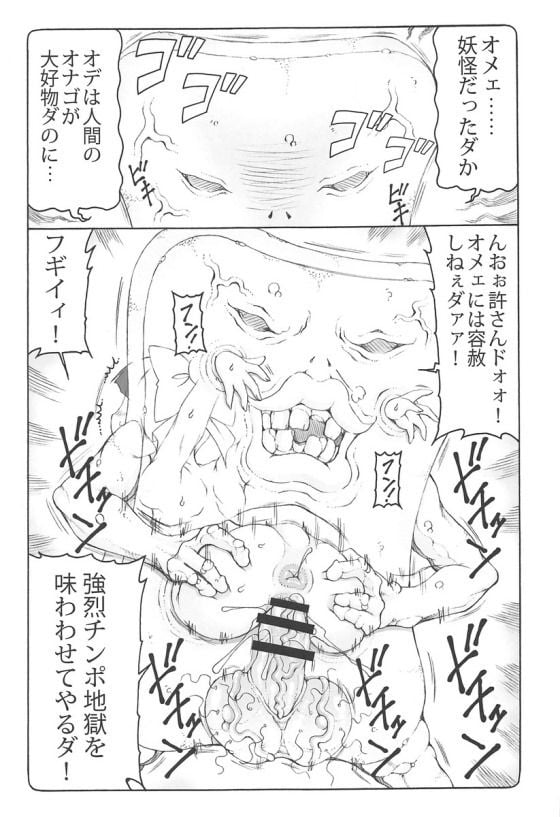 オメェ……
妖怪だったダか
ゴゴ
ゴゴ
オデは人間の
オナゴが
大好物ダのに…
ビキ
ビキ
んおぉ許さんドォォ！
オメェには容赦
しねぇダァァ！
フン！
フギイィ！
フン！
ビチッン
ビチッン
ビチッン
ビチッン
強烈チンポ地獄を
味わわせてやるダ！